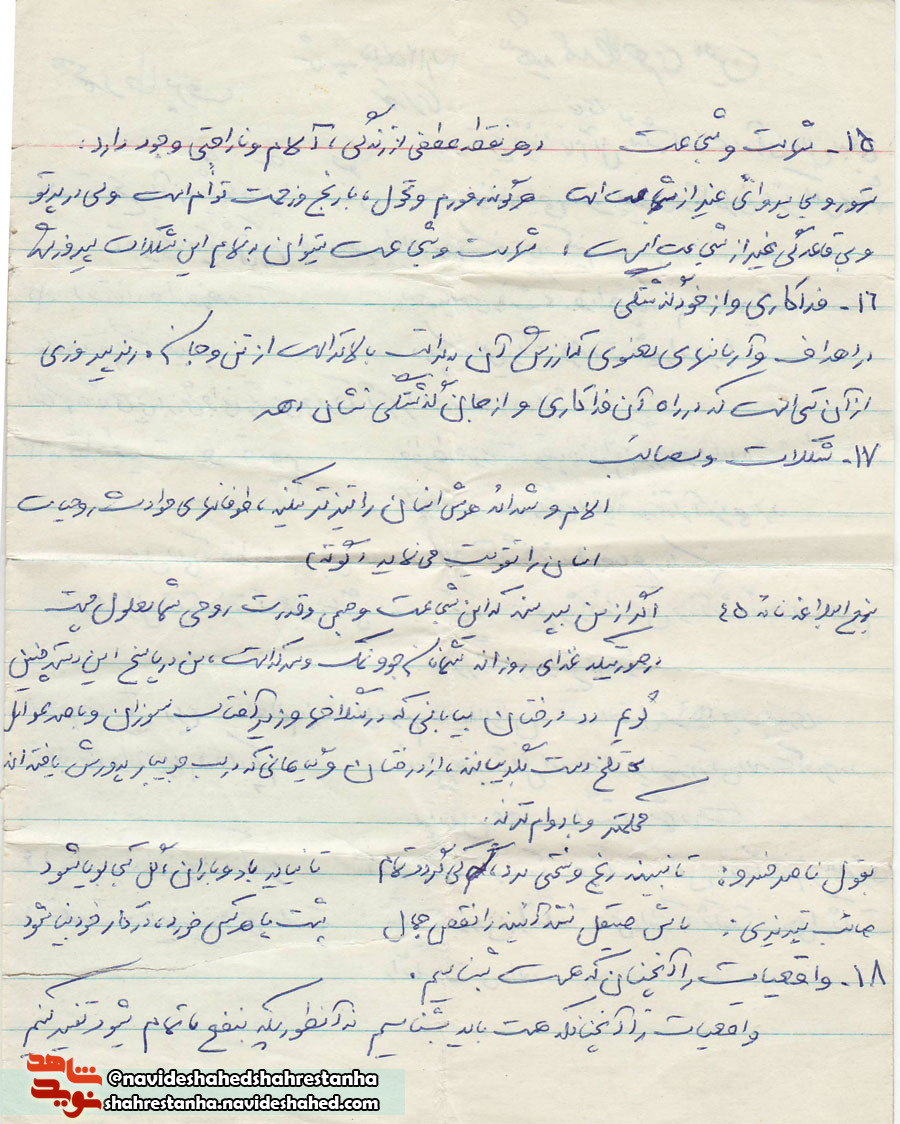 ۱۵- شهامت و شجاعت در هر نقطه عطفی از زندگی، آلام و ناراحتی وجود دارد:
تهور و بی پروائی غیر از شجاعت است هرگونه رفورم و تحول، با رنج و زحمت توأم است ولی در پرتو
و بی قاعدگی غیر از شجاعت است، شهامت و شجاعت میتوان بر تمام این مشکلات پیروز شد
۱۶- فداکاری و از خودگذشتگی
در اهداف و آرمانهای معنوی که ارزش آن بمراتب بالاتر است از تن و جان پیروزی
از آن کسی است که در راه آن فداکاری و از جان گذشتگی نشان دهد
۱۷- مشکلات و مصائب
الام و شدائد هوش انسان را تیزتر میکند، طوفانهای حوادث روحیات
انسان را تقویت می نماید (گوته)
نهج البلاغه نامه ۴۵ اگر از من بپرسند که این شجاعت و جسمی و قدرت روحی شما معلول چیست
در صورتیکه غذای روزانه شما نان جو و نمک و سرکه است، من در پاسخ این دسته چنین
گویم درختان بیابانی که در سنگلاخها و زیر آفتاب سوزان و با صد عوامل
تلخ دست بگریبانند، از درختان و گیاهانی که در لب جویبار پرورش یافته اند
محکمتر و با دوام ترند.
بقول ناصر خسرو: تا نبیند رنج و سختی مرد، کی گردد تمام تا نیاید باد و باران، گل کجا بویا شود
صائب تبریزی: باش صیقل آئینه را نقص جمال پشت پا هر کس خورد، در کار خود بینا شود
۱۸- واقعیات را آنچنان که هست بشناسیم.
واقعیات را آنچنانکه هست باید بشناسیم نه آنطوریکه بنفع ما تمام میشود تفسیر کنیم
شاهد
نوید
@navideshahedshahrestanha
shahrestanha.navideshahed.com